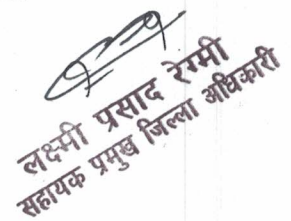 लक्ष्मी प्रसाद रेग्मी
सहायक प्रमुख जिल्ला अधिकारी